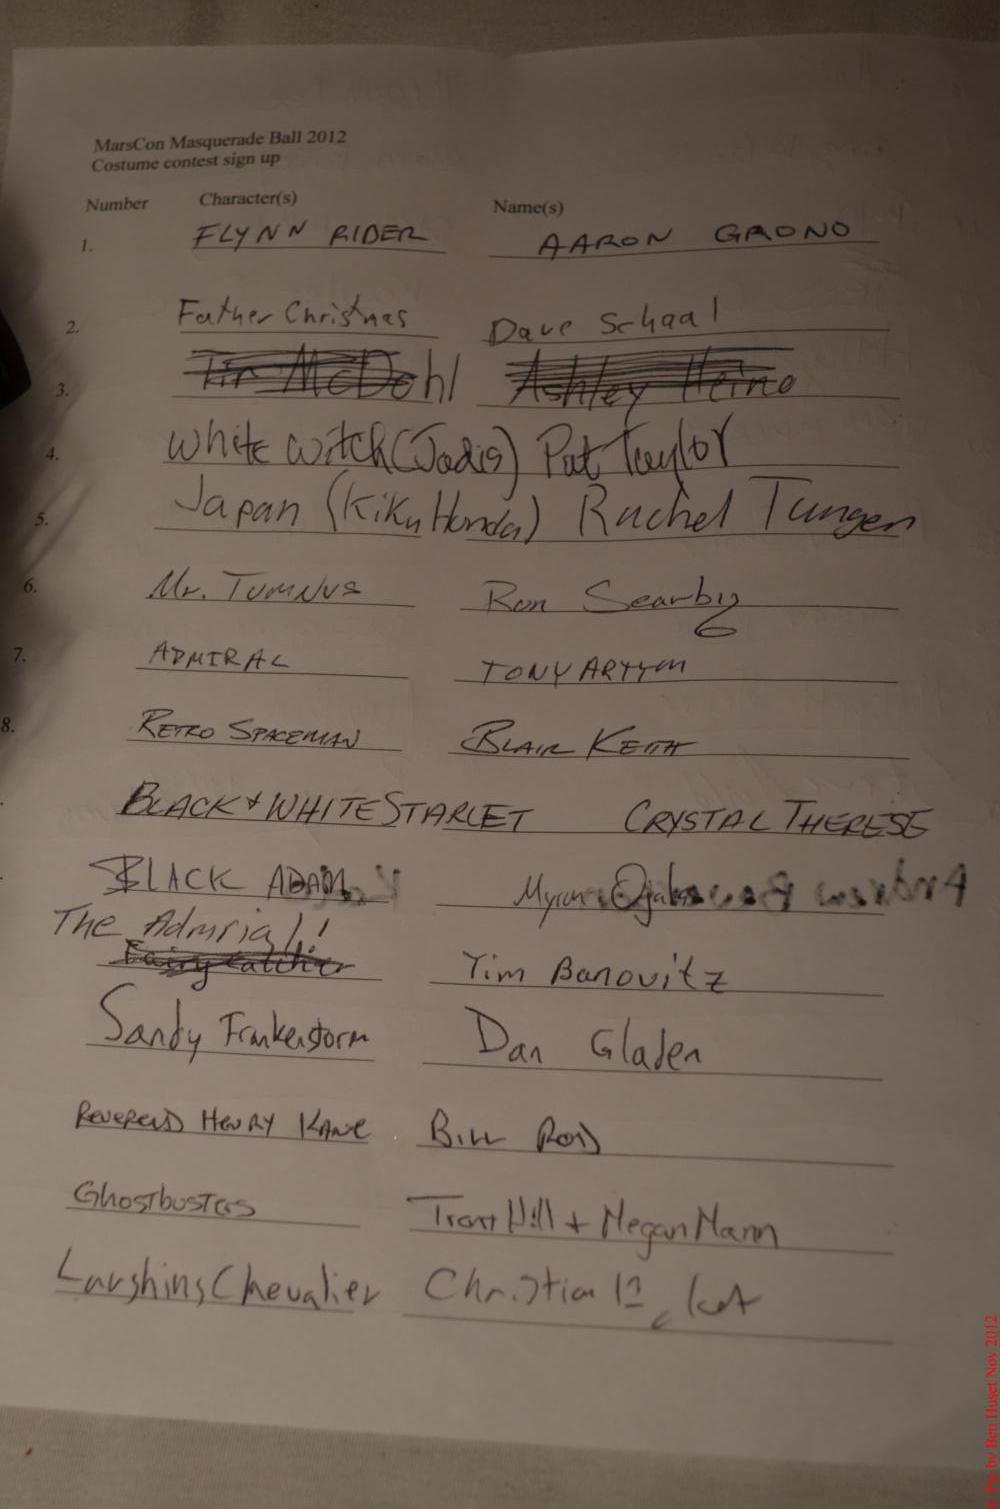 MarsCon Masquerade Ball 2012
Costume contest sign up
Number Character(s) Name(s)
1. FLYNN RIDER AARON GRONO
2. Father Christmas Dave Schaal
3. Tir McDohl Ashley Heino
4. White Witch (Jadis) Pat Taylor
5. Japan (Kiku Honda) Rachel Tungen
6. Mr. TUMNUS Ron Searby
7. ADMIRAL TONY ARTYM
8. RETRO SPACEMAN BLAIR KEITH
BLACK & WHITE STARLET CRYSTAL THERESE
BLACK ADAM Myron
The Admrial!!
Fairy Catcher Tim Banovitz
Sandy Frankenstorm Dan Gladen
REVEREND HENRY KANE BILL
Ghostbusters Trent Hill + Megan Mann
Laughing Chevalier Christian
Pic by Ben Huset Nov 2012